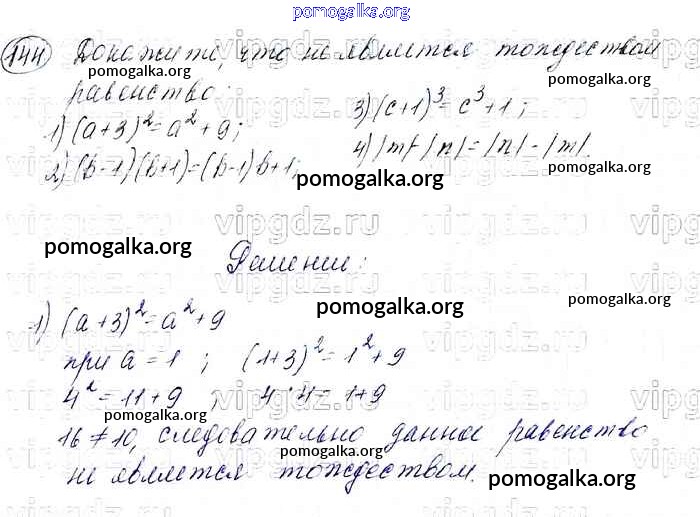 pomogalka.org
144 Докажите, что не является тождеством
pomogalka.org
pomogalka.org
равенство:
1) (a+3)² = a² + 9;
3) (c+1)³ = c³ + 1;
2) (b-1)(b+1) = (b-1)b+1;
4) |m|-|n| = |n|-|m|.
pomogalka.org
pomogalka.org
pomogalka.org
Решение:
pomogalka.org
pomogalka.org
1) (a+3)² = a² + 9
при a = 1 ; (1+3)² = 1² + 9
4² = 11 + 9 ; 4·4 = 1+9
pomogalka.org
16 ≠ 10, следовательно данное равенство
не является тождеством.
pomogalka.org